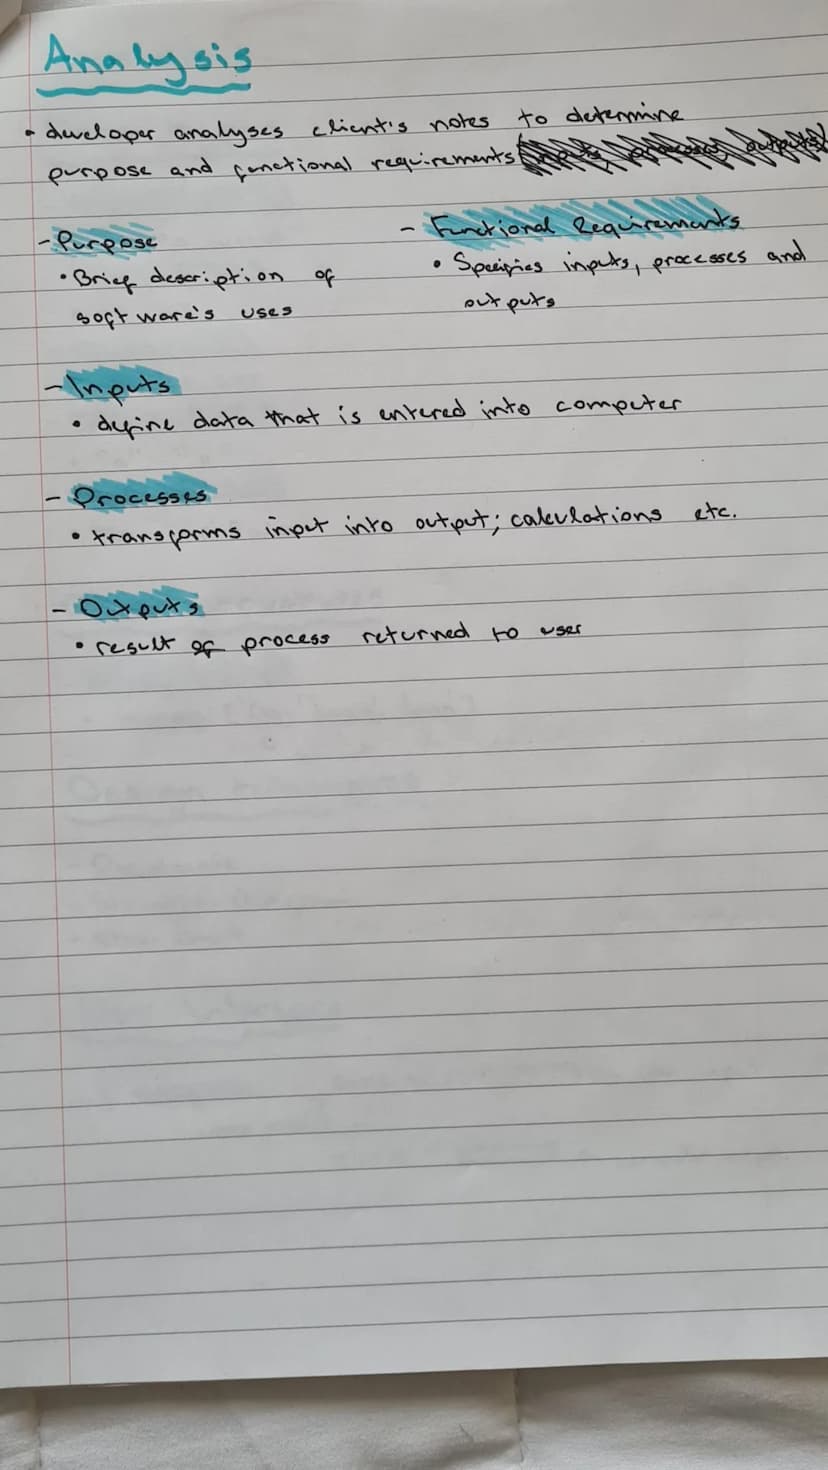 Analysis
• developer analyses client's notes to determine
purpose and functional requirements (inputs, processes, outputs)
- Purpose
• Brief description of
software's uses
- Functional Requirements
• Specifies inputs, processes and
outputs
- Inputs
• define data that is entered into computer
- Processes
• transforms input into output; calculations etc.
- Outputs
• result of process returned to user